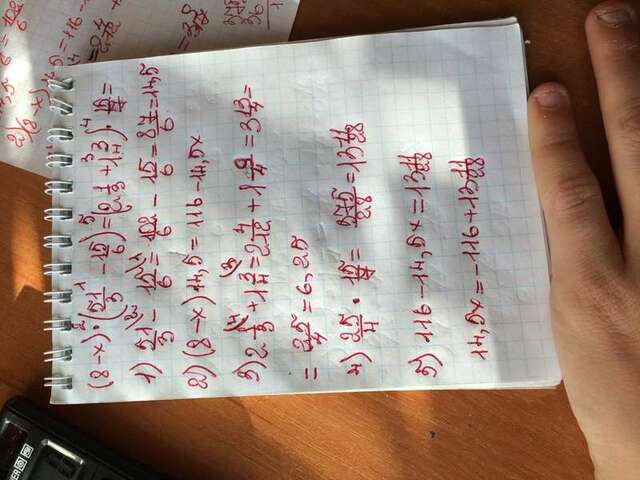 (8-x)·(51/3 - 15/6) = (2 1/3 + 1 3/4)· 15/7 =
1) 51/3 - 15/6 = 102/6 - 15/6 = 87/6 = 14,5
2) (8-x) 14,5 = 116 - 14,5x
3) 2 1/3 + 1 3/4 = 2 4/12 + 1 9/4 = 3 13/4 =
= 25/4 = 6,25
4) 25/4 · 15/7 = 375/28 = 13 11/28
5) 116 - 14,5x = 13 11/28
14,5x = -116 + 13 11/28